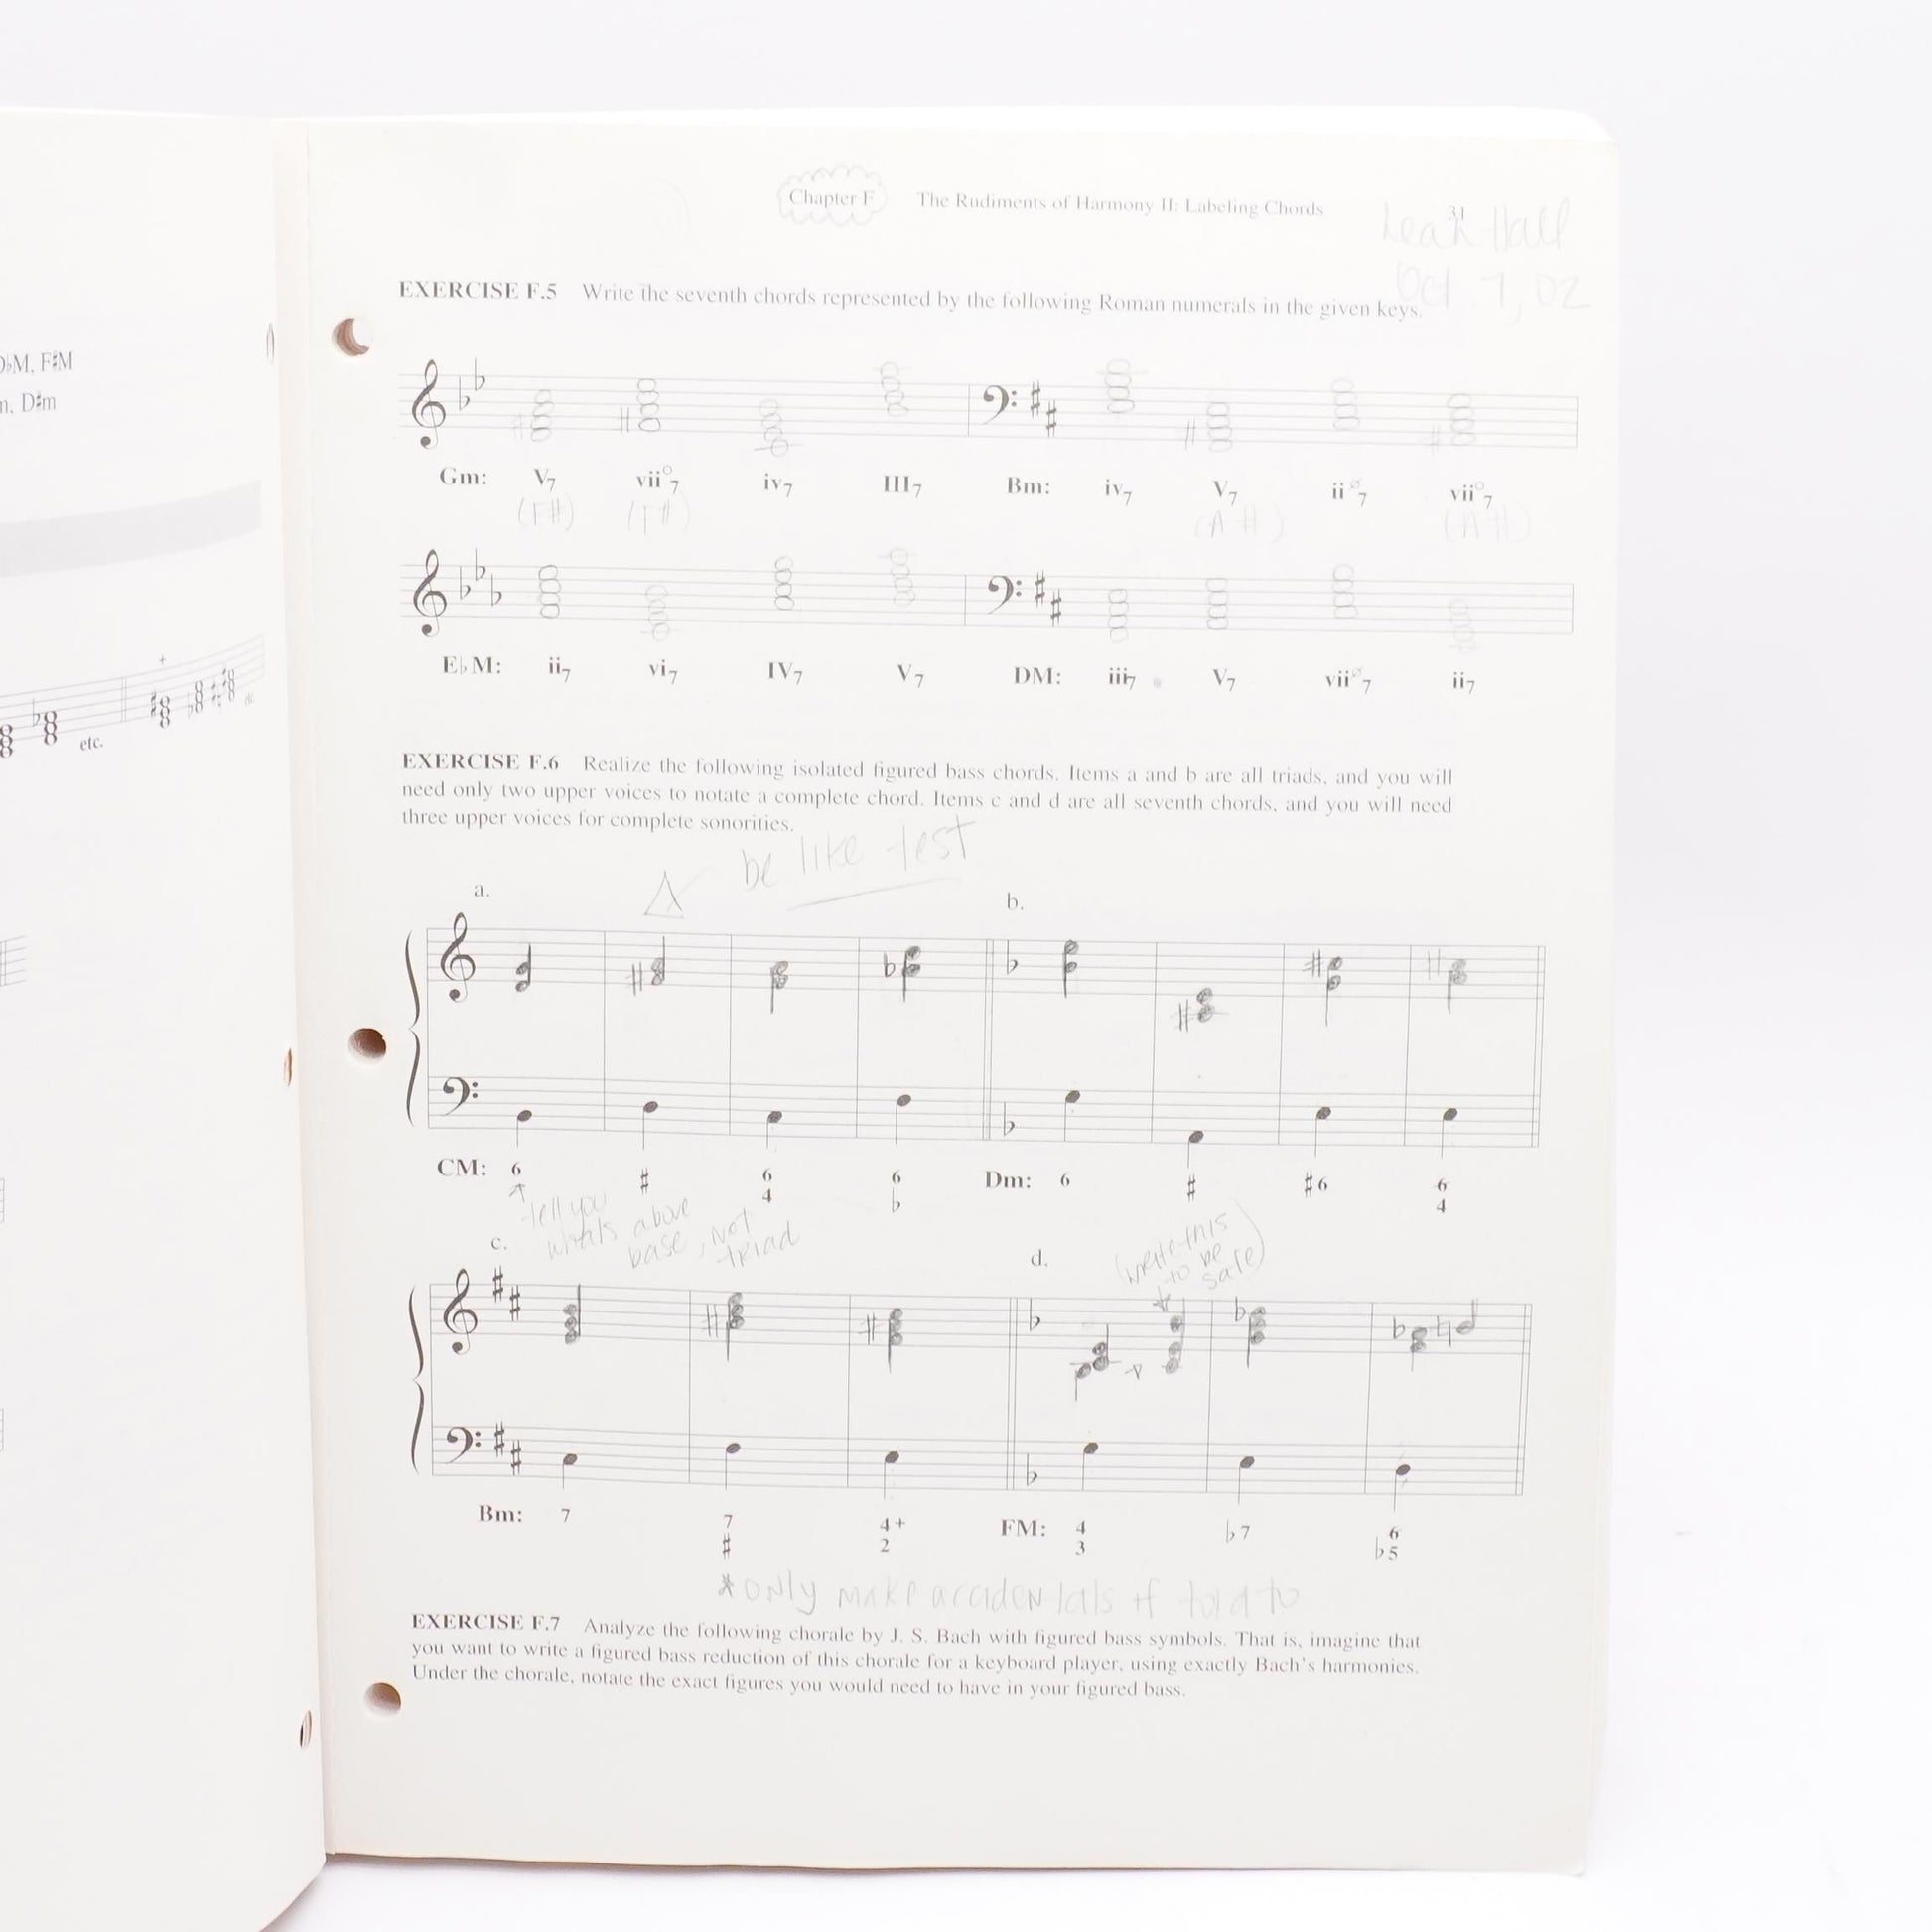 D♭M, F♯M
m, D♯m
etc.
Chapter F The Rudiments of Harmony II: Labeling Chords 31
Leah Hall
Oct. 7, 02
EXERCISE F.5 Write the seventh chords represented by the following Roman numerals in the given keys.
Gm: V7 vii°7 iv7 III7 Bm: iv7 V7 iiø7 vii°7
(F#) (F#) (A#) (A#)
E♭M: ii7 vi7 IV7 V7 DM: iii7 V7 viiø7 ii7
EXERCISE F.6 Realize the following isolated figured bass chords. Items a and b are all triads, and you will
need only two upper voices to notate a complete chord. Items c and d are all seventh chords, and you will need
three upper voices for complete sonorities.
be like test
a. b.
CM: 6 ♯ 6 6 Dm: 6 ♯ ♯6 6
4 ♭ 4
tell you
whats above
base, not
triad
c. d.
(write this
to be
safe)
Bm: 7 7 4+ FM: 4 ♭7 6
♯ 2 3 ♭5
*only make accidentals if told to
EXERCISE F.7 Analyze the following chorale by J. S. Bach with figured bass symbols. That is, imagine that
you want to write a figured bass reduction of this chorale for a keyboard player, using exactly Bach's harmonies.
Under the chorale, notate the exact figures you would need to have in your figured bass.